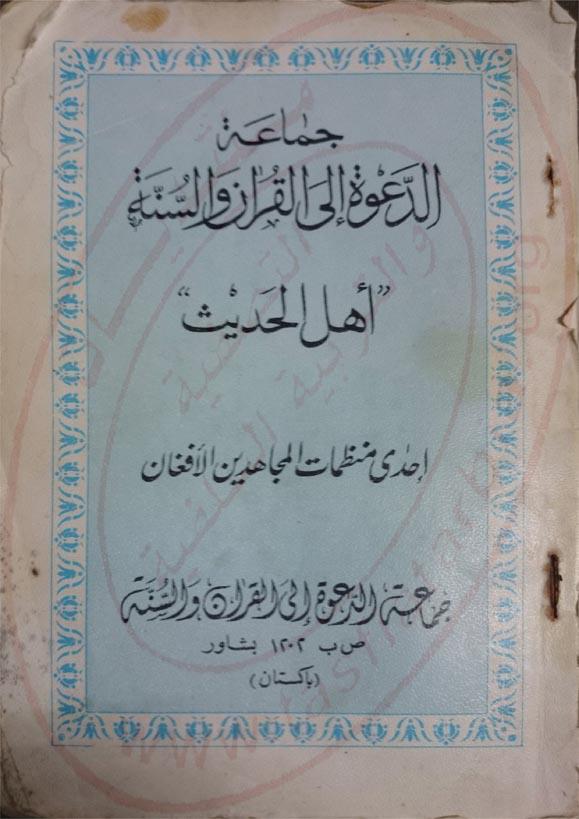 جماعة
الدَّعْوة إلى القُرآن والسُّنَّة
“أهل الحَديْث”
إحدى منظمات المجاهدين الأفغان
جماعة الدعوة إلى القرآن والسُّنَّة
ص ب ١٢٠٢ بشاور
(باكستان)